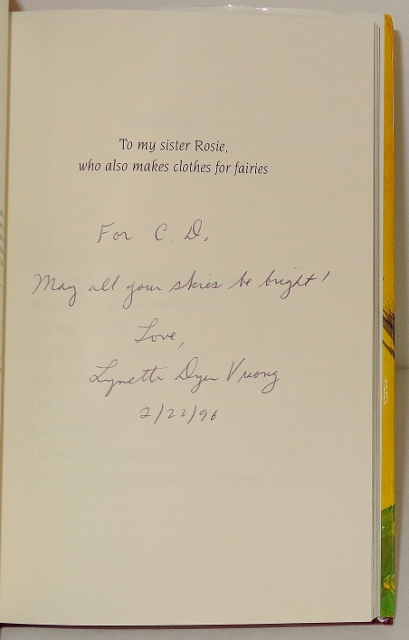 To my sister Rosie,
who also makes clothes for fairies
For C. D.
May all your skies be bright!
Love,
Lynette Dyer Vuong
2/22/96